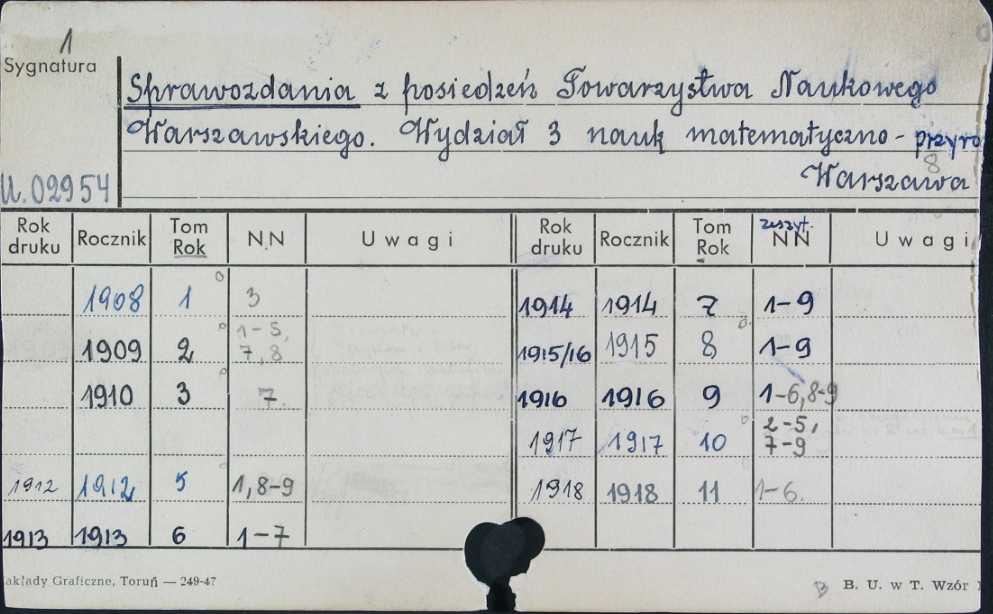 1
Sygnatura
Sprawozdania z posiedzeń Towarzystwa Naukowego
Warszawskiego. Wydział 3 nauk matematyczno - przyro
8
U. 02954 Warszawa
Rok druku Rocznik Tom Rok NN Uwagi Rok druku Rocznik Tom Rok zeszyt. NN Uwagi
1908 1 3 1914 1914 7 1-9
1909 2 1-5, 7,8 1915/16 1915 8 1-9
1910 3 7. 1916 1916 9 1-6,8-9
1917 1917 10 2-5, 7-9
1912 1912 5 1,8-9 1918 1918 11 1-6.
1913 1913 6 1-7
akłady Graficzne, Toruń — 249-47 B. U. w T. Wzór